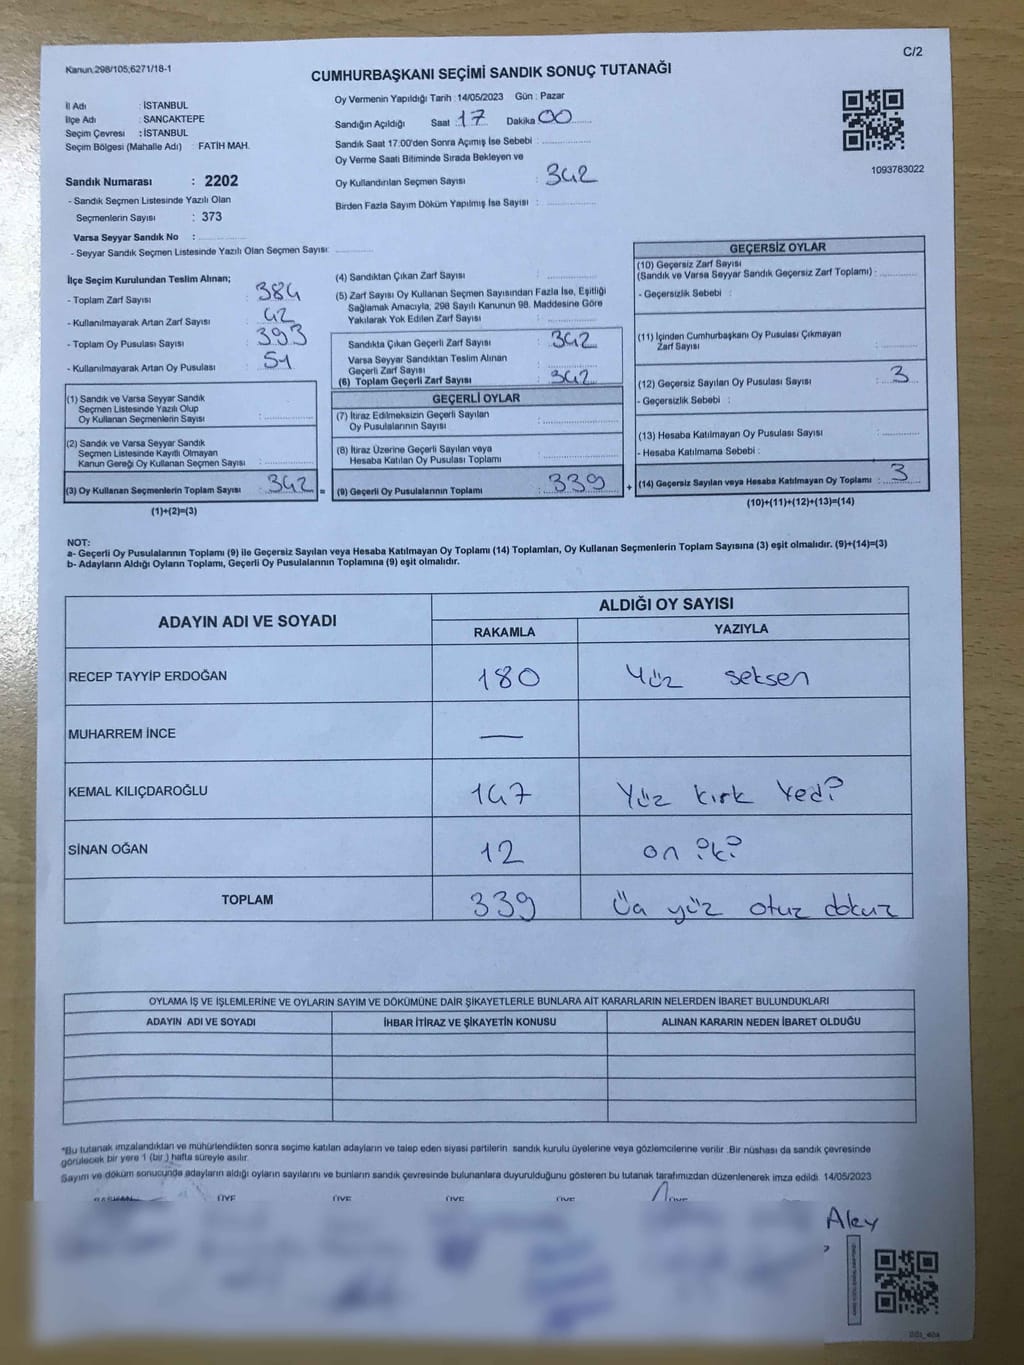 C/2
Kanun.298/105;6271/18-1
CUMHURBAŞKANI SEÇİMİ SANDIK SONUÇ TUTANAĞI
İl Adı : İSTANBUL
İlçe Adı : SANCAKTEPE
Seçim Çevresi : İSTANBUL
Seçim Bölgesi (Mahalle Adı) : FATİH MAH.
Sandık Numarası : 2202
- Sandık Seçmen Listesinde Yazılı Olan
Seçmenlerin Sayısı : 373
Varsa Seyyar Sandık No :
- Seyyar Sandık Seçmen Listesinde Yazılı Olan Seçmen Sayısı:
Oy Vermenin Yapıldığı Tarih : 14/05/2023 Gün : Pazar
Sandığın Açıldığı Saat : 17 Dakika 00
Sandık Saat 17.00'den Sonra Açımış İse Sebebi :
Oy Verme Saati Bitiminde Sırada Bekleyen ve
Oy Kullandırılan Seçmen Sayısı : 342
Birden Fazla Sayım Döküm Yapılmış İse Sayısı :
1093783022
İlçe Seçim Kurulundan Teslim Alınan;
- Toplam Zarf Sayısı : 384
- Kullanılmayarak Artan Zarf Sayısı : 42
- Toplam Oy Pusulası Sayısı : 393
- Kullanılmayarak Artan Oy Pusulası : 51
(1) Sandık ve Varsa Seyyar Sandık
Seçmen Listesinde Yazılı Olup
Oy Kullanan Seçmenlerin Sayısı :
(2) Sandık ve Varsa Seyyar Sandık
Seçmen Listesinde Kayıtlı Olmayan
Kanun Gereği Oy Kullanan Seçmen Sayısı :
(3) Oy Kullanan Seçmenlerin Toplam Sayısı : 342 =
(1)+(2)=(3)
(4) Sandıktan Çıkan Zarf Sayısı :
(5) Zarf Sayısı Oy Kullanan Seçmen Sayısından Fazla İse, Eşitliği
Sağlamak Amacıyla, 298 Sayılı Kanunun 98. Maddesine Göre
Yakılarak Yok Edilen Zarf Sayısı :
Sandıkta Çıkan Geçerli Zarf Sayısı : 342
Varsa Seyyar Sandıktan Teslim Alınan
Geçerli Zarf Sayısı :
(6) Toplam Geçerli Zarf Sayısı : 342
GEÇERLİ OYLAR
(7) İtiraz Edilmeksizin Geçerli Sayılan
Oy Pusulalarının Sayısı :
(8) İtiraz Üzerine Geçerli Sayılan veya
Hesaba Katılan Oy Pusulası Toplamı :
(9) Geçerli Oy Pusulalarının Toplamı : 339 +
GEÇERSİZ OYLAR
(10) Geçersiz Zarf Sayısı
(Sandık ve Varsa Seyyar Sandık Geçersiz Zarf Toplamı) :
- Geçersizlik Sebebi :
(11) İçinden Cumhurbaşkanı Oy Pusulası Çıkmayan
Zarf Sayısı :
(12) Geçersiz Sayılan Oy Pusulası Sayısı : 3
- Geçersizlik Sebebi :
(13) Hesaba Katılmayan Oy Pusulası Sayısı :
- Hesaba Katılmama Sebebi :
(14) Geçersiz Sayılan veya Hesaba Katılmayan Oy Toplamı : 3
(10)+(11)+(12)+(13)=(14)
NOT:
a- Geçerli Oy Pusulalarının Toplamı (9) ile Geçersiz Sayılan veya Hesaba Katılmayan Oy Toplamı (14) Toplamları, Oy Kullanan Seçmenlerin Toplam Sayısına (3) eşit olmalıdır. (9)+(14)=(3)
b- Adayların Aldığı Oyların Toplamı, Geçerli Oy Pusulalarının Toplamına (9) eşit olmalıdır.
ADAYIN ADI VE SOYADI
ALDIĞI OY SAYISI
RAKAMLA YAZIYLA
RECEP TAYYİP ERDOĞAN 180 Yüz seksen
MUHARREM İNCE —
KEMAL KILIÇDAROĞLU 147 Yüz kırk Yedi
SİNAN OĞAN 12 on iki
TOPLAM 339 Üç yüz otuz dokuz
OYLAMA İŞ VE İŞLEMLERİNE VE OYLARIN SAYIM VE DÖKÜMÜNE DAİR ŞİKAYETLERLE BUNLARA AİT KARARLARIN NELERDEN İBARET BULUNDUKLARI
ADAYIN ADI VE SOYADI İHBAR İTİRAZ VE ŞİKAYETİN KONUSU ALINAN KARARIN NEDEN İBARET OLDUĞU
*Bu tutanak imzalandıktan ve mühürlendikten sonra seçime katılan adayların ve talep eden siyasi partilerin sandık kurulu üyelerine veya gözlemcilerine verilir .Bir nüshası da sandık çevresinde
görülecek bir yere 1 (bir ) hafta süreyle asılır.
Sayım ve döküm sonucunda adayların aldığı oyların sayılarını ve bunların sandık çevresinde bulunanlara duyurulduğunu gösteren bu tutanak tarafımızdan düzenlenerek imza edildi. 14/05/2023
BAŞKAN ÜYE ÜYE ÜYE ÜYE ÜYE